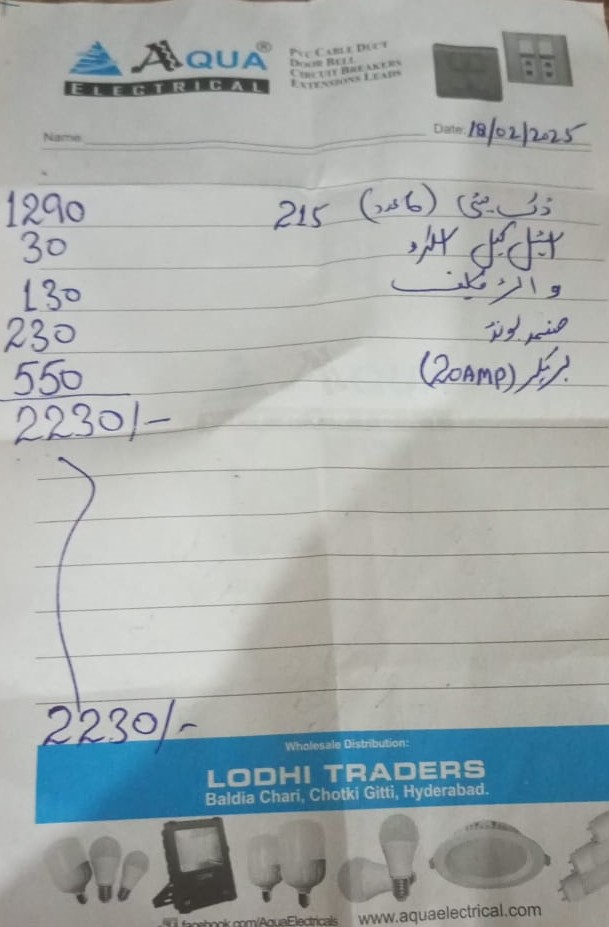 AQUA®
ELECTRICAL
PVC CABLE DUCT
DOOR BELL
CIRCUIT BREAKERS
EXTENSIONS LEADS
Name:
Date: 18/02/2025
(6 عدد) 215 1290
اسٹیل کیل 30
130
230
بریکر (20AMP) 550
2230/-
2230/-
Wholesale Distribution:
LODHI TRADERS
Baldia Chari, Chotki Gitti, Hyderabad.
facebook.com/AquaElectricals
www.aquaelectrical.com